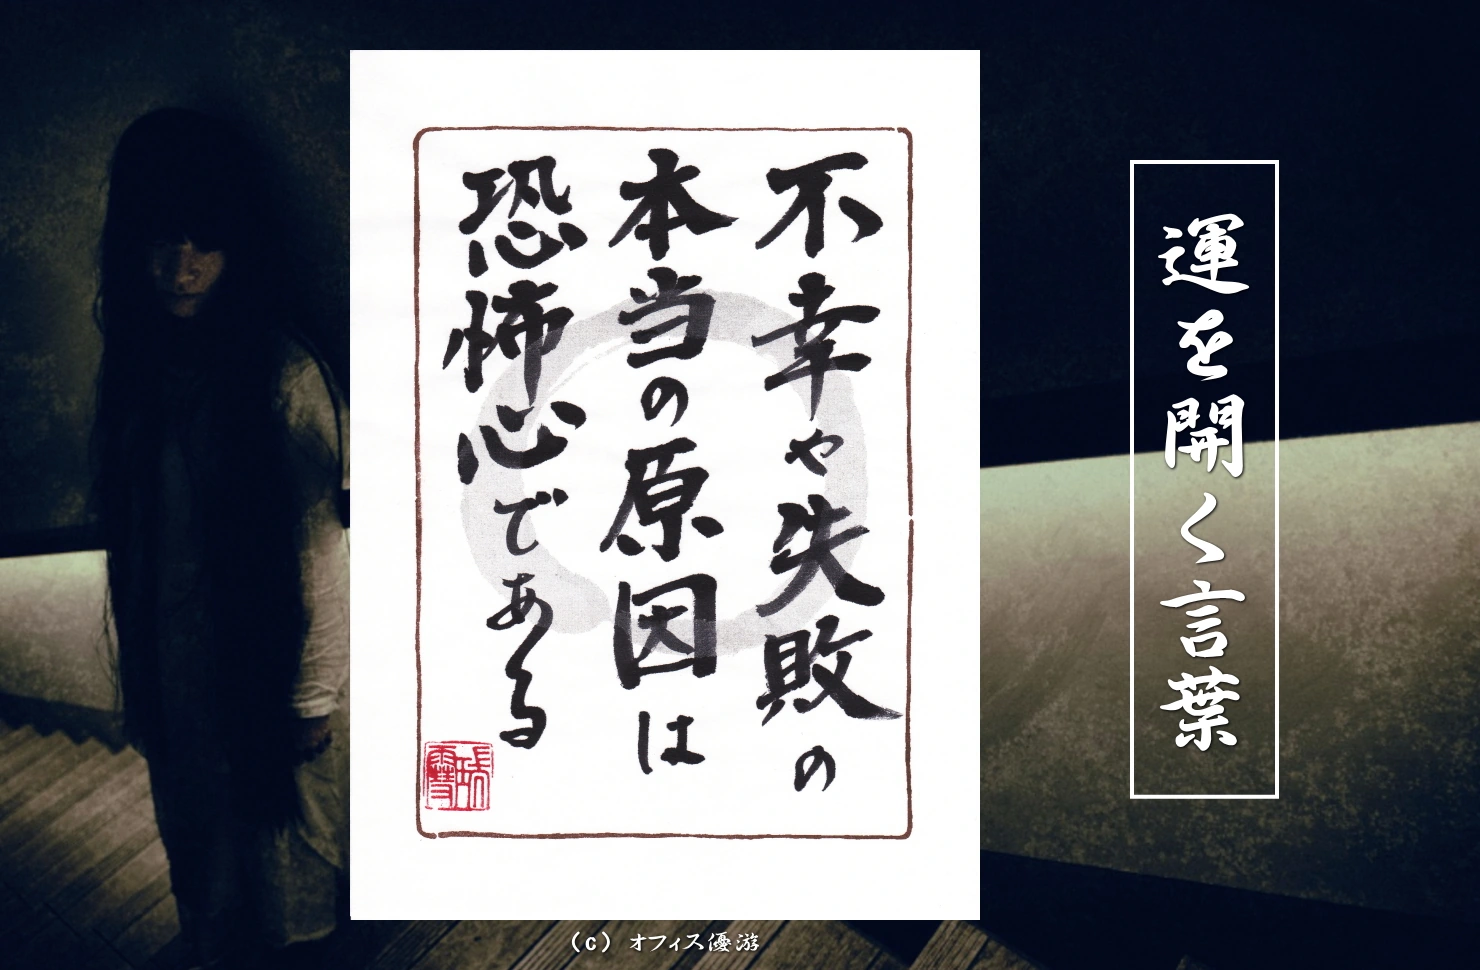 運を開く言葉
不幸や失敗の
本当の原因は
恐怖心である
(c) オフィス優游